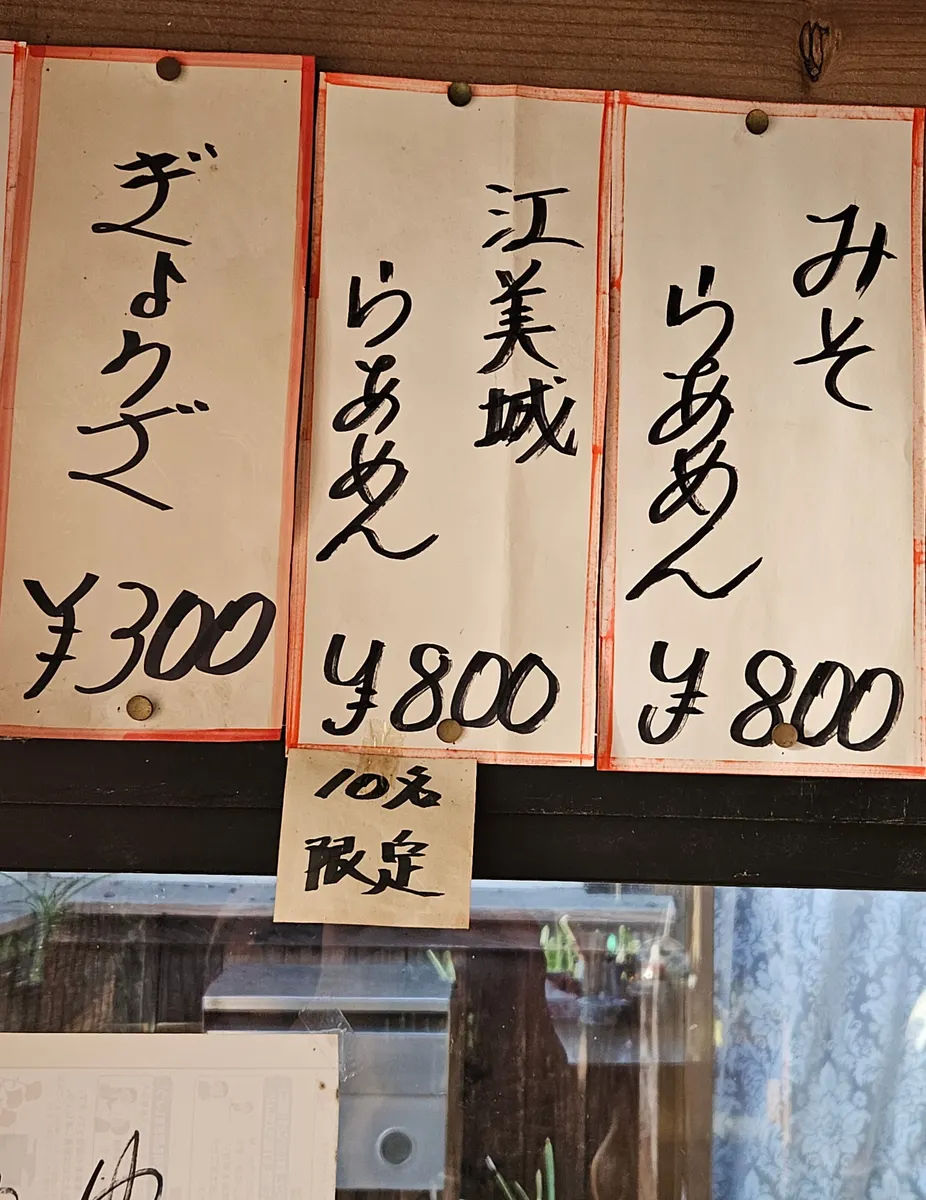 みそ
らあめん
¥800
江美城
らあめん
¥800
10名
限定
ぎょうざ
¥300